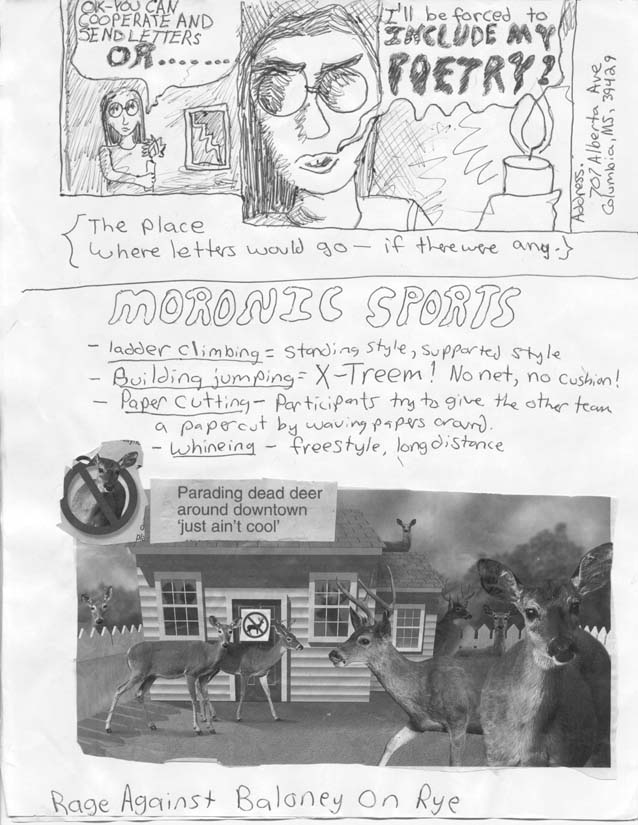 OK-YOU CAN
COOPERATE AND
SEND LETTERS
OR.......
I'll be forced to
INCLUDE MY
POETRY!
Address.
707 Alberta Ave
Columbia, MS, 39429
{The place
where letters would go — if there were any.}
MORONIC SPORTS
- ladder climbing = standing style, supported style
- Building jumping = X-Treem! No net, no cushion!
- Paper Cutting - Participants try to give the other team
a papercut by waving papers around.
- whineing - freestyle, long distance
Parading dead deer
around downtown
'just ain't cool'
Rage Against Baloney On Rye